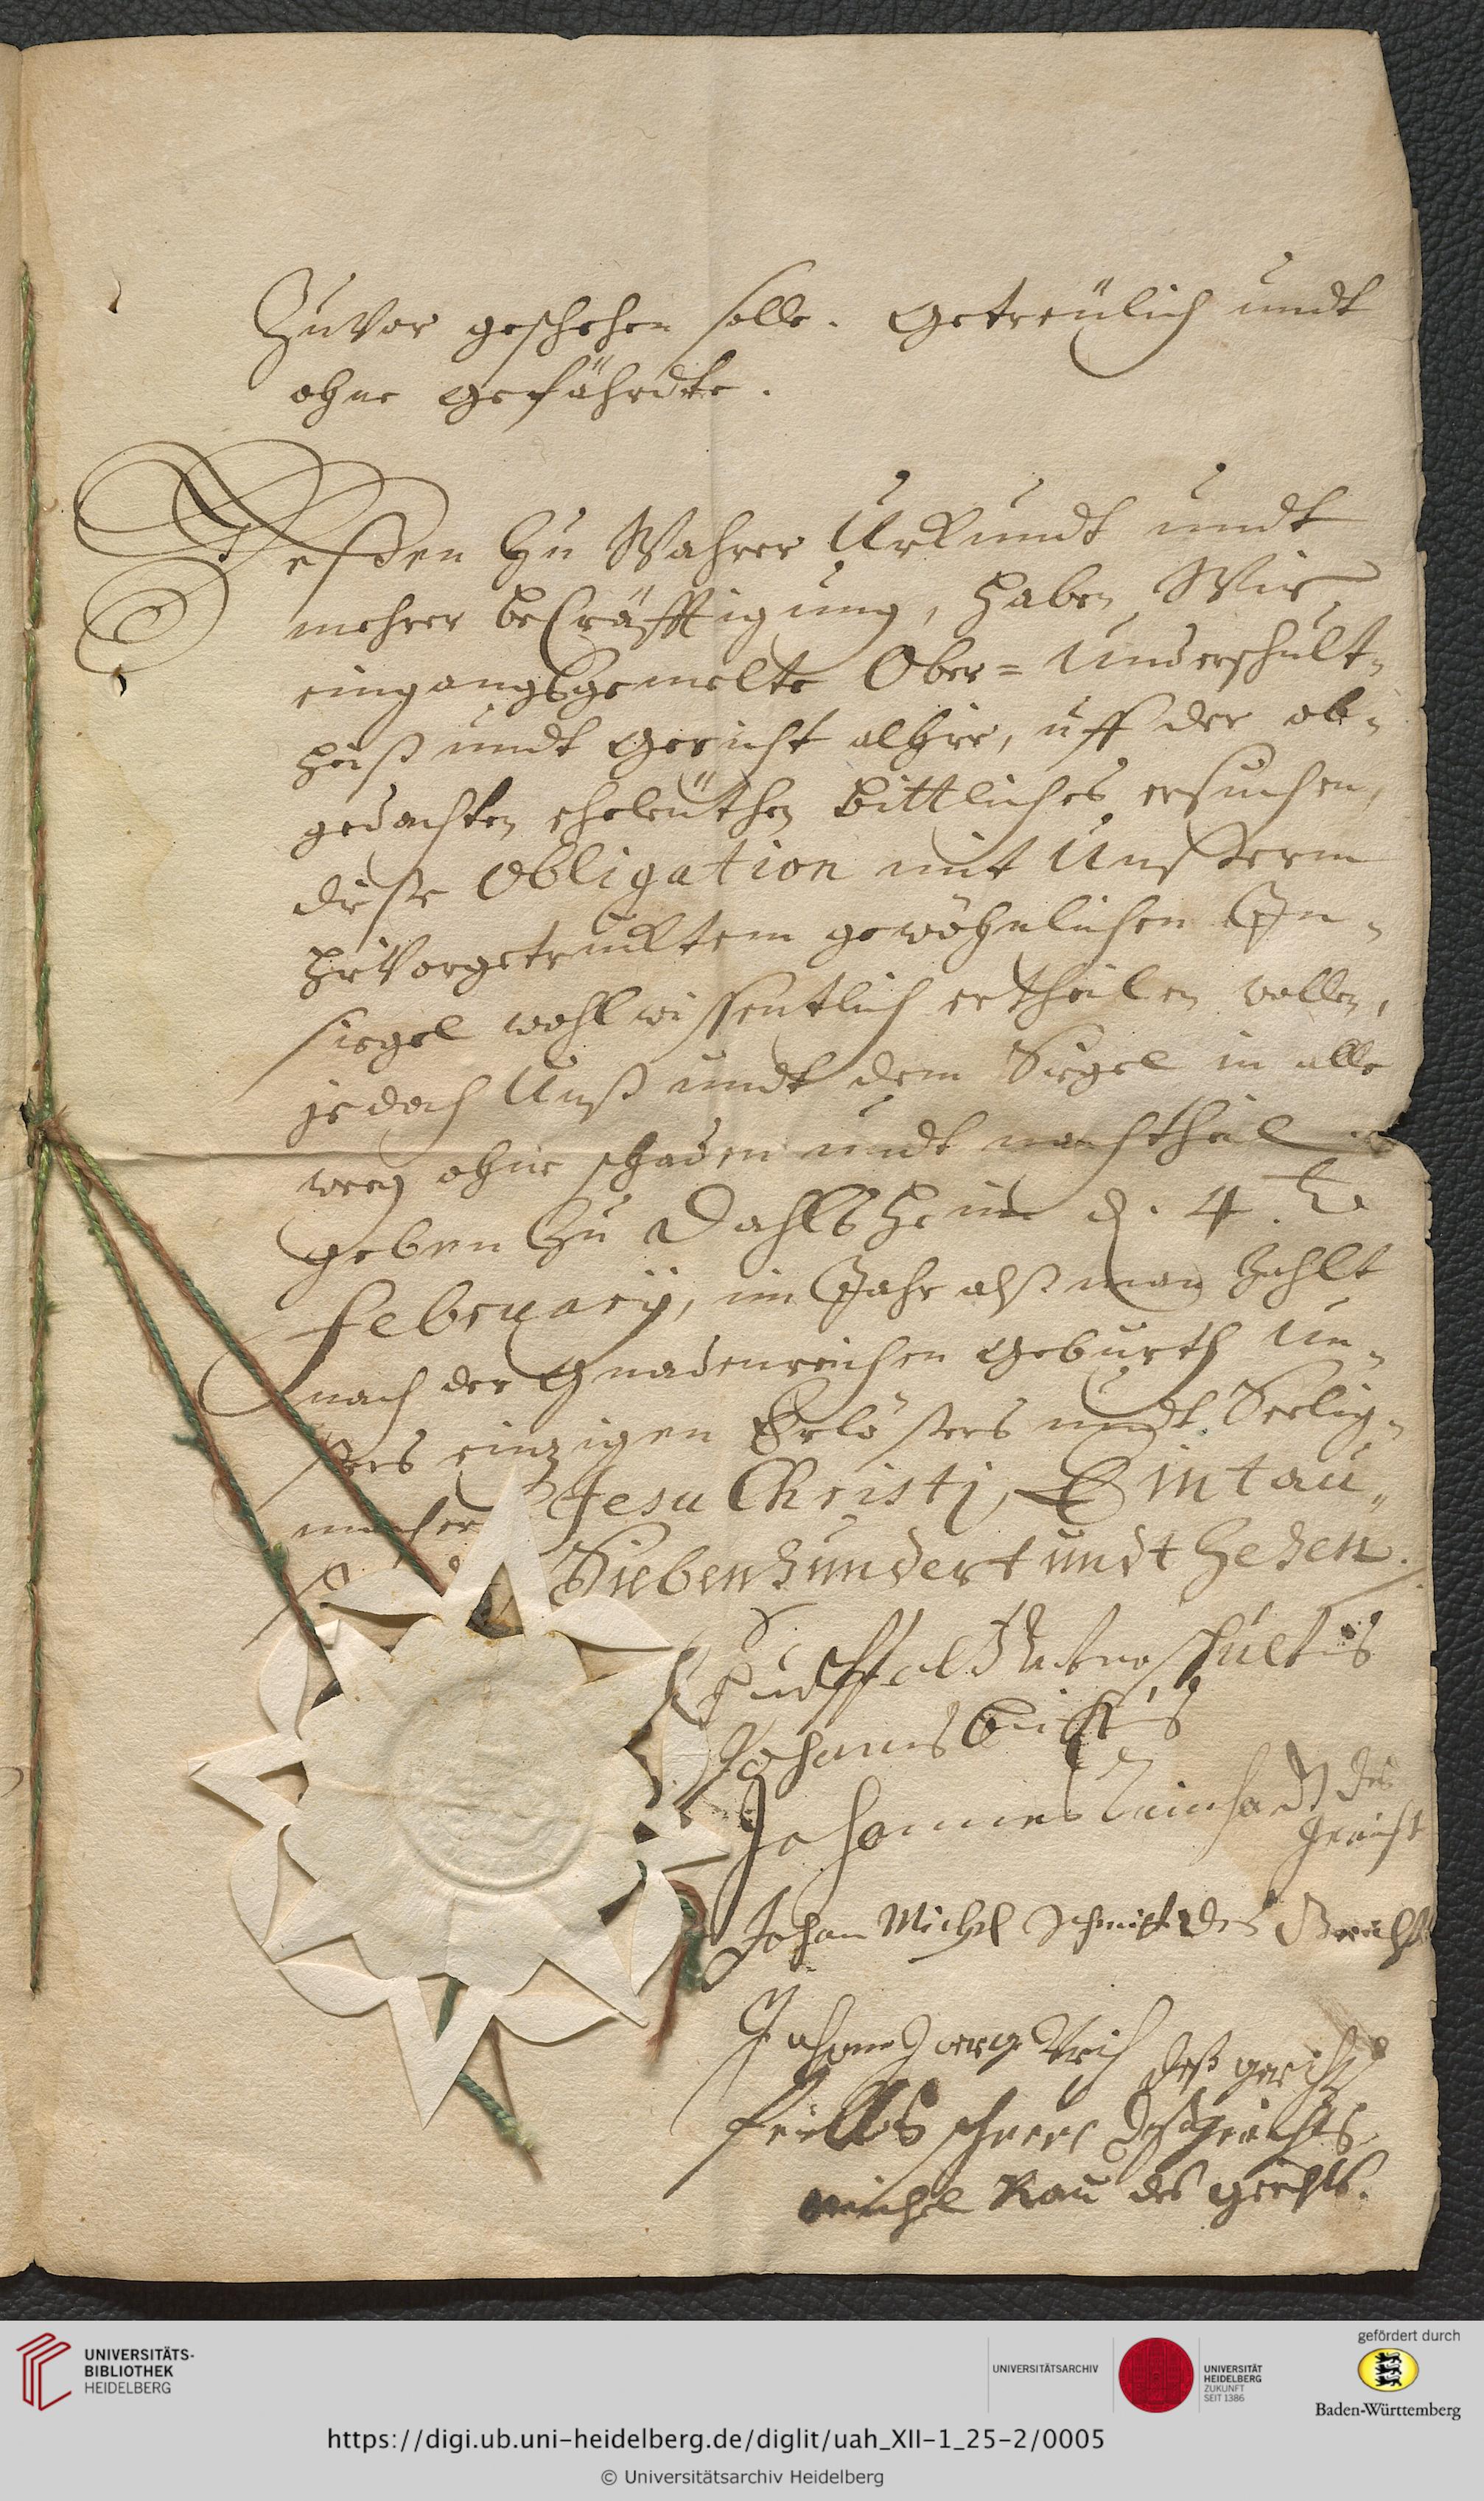 Zuvor geschehen solle. Getreülich undt
ohne gefährdte.
Deßen zu Wahrer Urkundt undt
mehrer becräfftigung, haben Wir
eingangsgemelte Ober= Underschult-
heiß undt Gericht alhier, uff der ob-
gedachten eheleüthen bittliches ersuchen,
diese Obligation mit Unßerem
hievorgetrucktem gewöhnlichen In-
siegel wohlwissentlich ertheilen wollen,
jedoch Unß undt dem Siegel in alle
weeg ohne schaden undt nachtheil
geben zu Dahlsheim d. 4.
february, im Jahr alß man zehlt
nach der Gnadenreichen Geburth Un-
ßers einzigen Erlößers undt Seelig-
macher Jesu Christi, Eintau-
Siebenhundert undt Zehen.
Underschultes
Johannes
Johannes des
Gericht
Johan Michel Schmitt des Gerichts
Johann Georg deß gerichts
deß gerichts
Michel Rau des gerichts.
UNIVERSITÄTS-
BIBLIOTHEK
HEIDELBERG
UNIVERSITÄTSARCHIV
UNIVERSITÄT
HEIDELBERG
ZUKUNFT
SEIT 1386
gefördert durch
Baden-Württemberg
https://digi.ub.uni-heidelberg.de/diglit/uah_XII-1_25-2/0005
© Universitätsarchiv Heidelberg